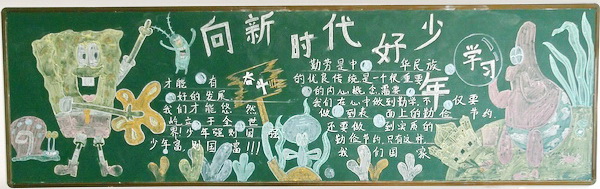 向新时代好少年
学习
奋斗
勤劳是中华民族
的优良传统是一个很重要
的内心概念需要
我们在心中做到勤学不仅要
做到表面上的勤俭节约
还要做到实质的
勤俭节约只有这样
我们国家
才能有
好的发展
我们才能悠然
屹立于全世
界!少年强则国强
少年富,则国富!!!